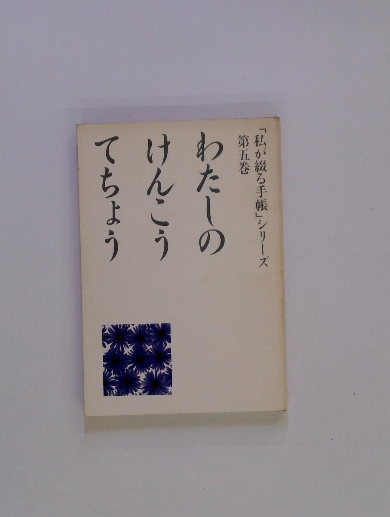 「私が綴る手帳」シリーズ
第五巻
わたしの
けんこう
てちょう